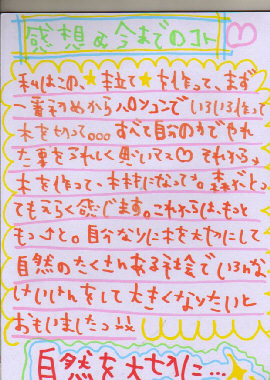 感想&今までのコト
私はこの、★本立て★を作って、まず
一番初めからパソコンでいろいろ作って
木を切って。。。すべて自分の力でやれ
た事をうれしく思いてス♡それから、
木を作って、木材になって。森がとっ
てもえらく感じます。これからは、もっと
もっっと。自分なりに木を大切にして
自然のたくさんある社会でいろんな
けいけんをして大きくなりたいと
おもいましたっ
自然を大切に…